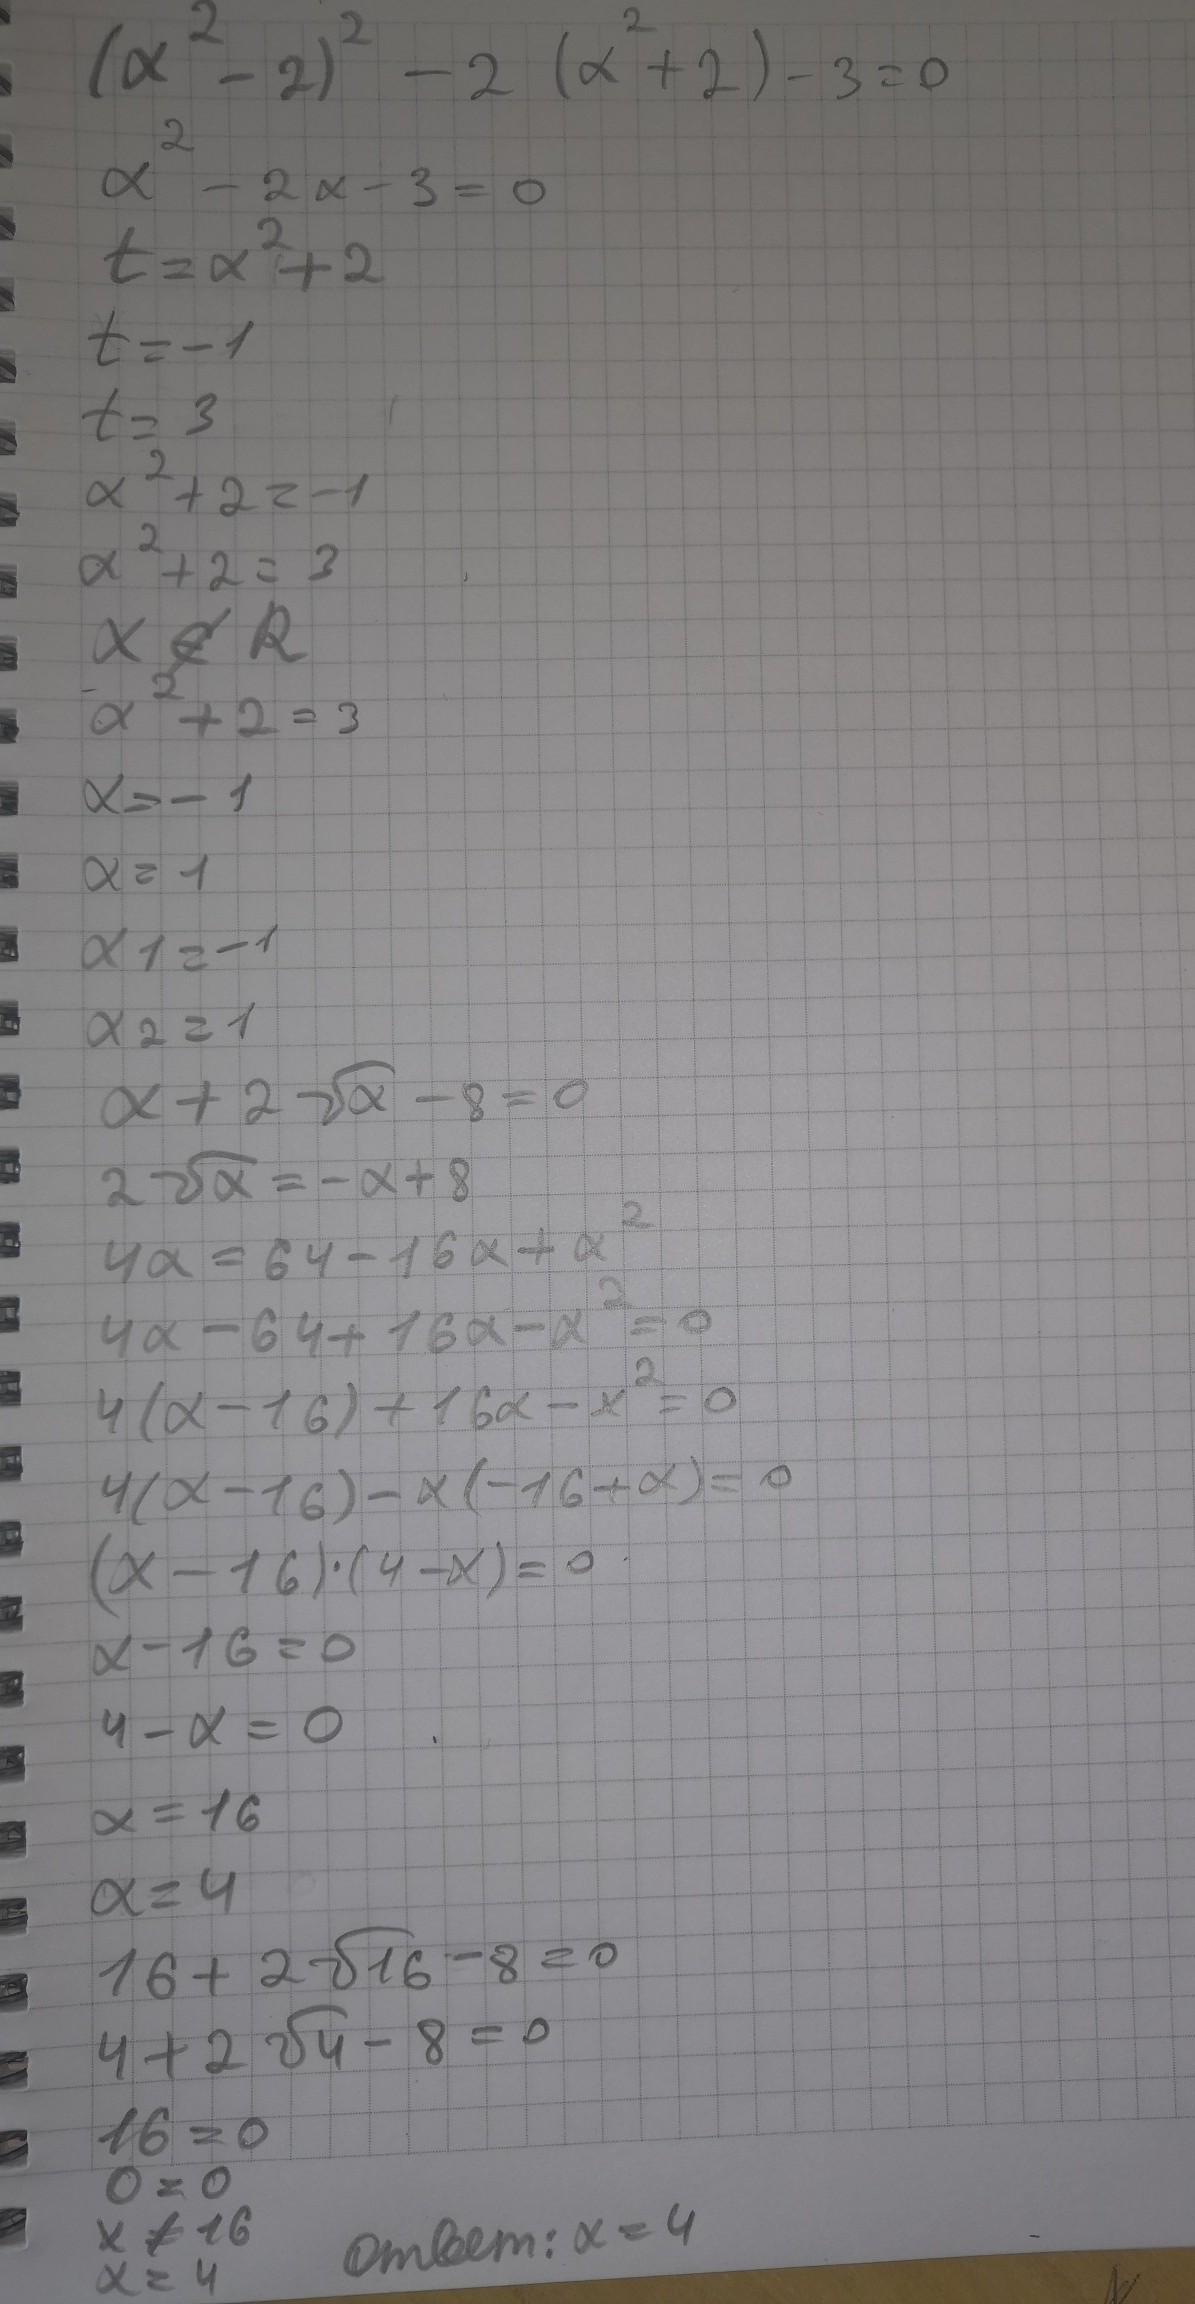 (x² - 2)² - 2 (x² + 2) - 3 = 0
x² - 2x - 3 = 0
t = x² + 2
t = -1
t = 3
x² + 2 = -1
x² + 2 = 3
x ∉ R
x² + 2 = 3
x = -1
x = 1
x1 = -1
x2 = 1
x + 2√x - 8 = 0
2√x = -x + 8
4x = 64 - 16x + x²
4x - 64 + 16x - x² = 0
4(x - 16) + 16x - x² = 0
4(x - 16) - x(-16 + x) = 0
(x - 16)·(4 - x) = 0
x - 16 = 0
4 - x = 0
x = 16
x = 4
16 + 2√16 - 8 = 0
4 + 2√4 - 8 = 0
16 = 0
0 = 0
x ≠ 16
x = 4
ответ: x = 4